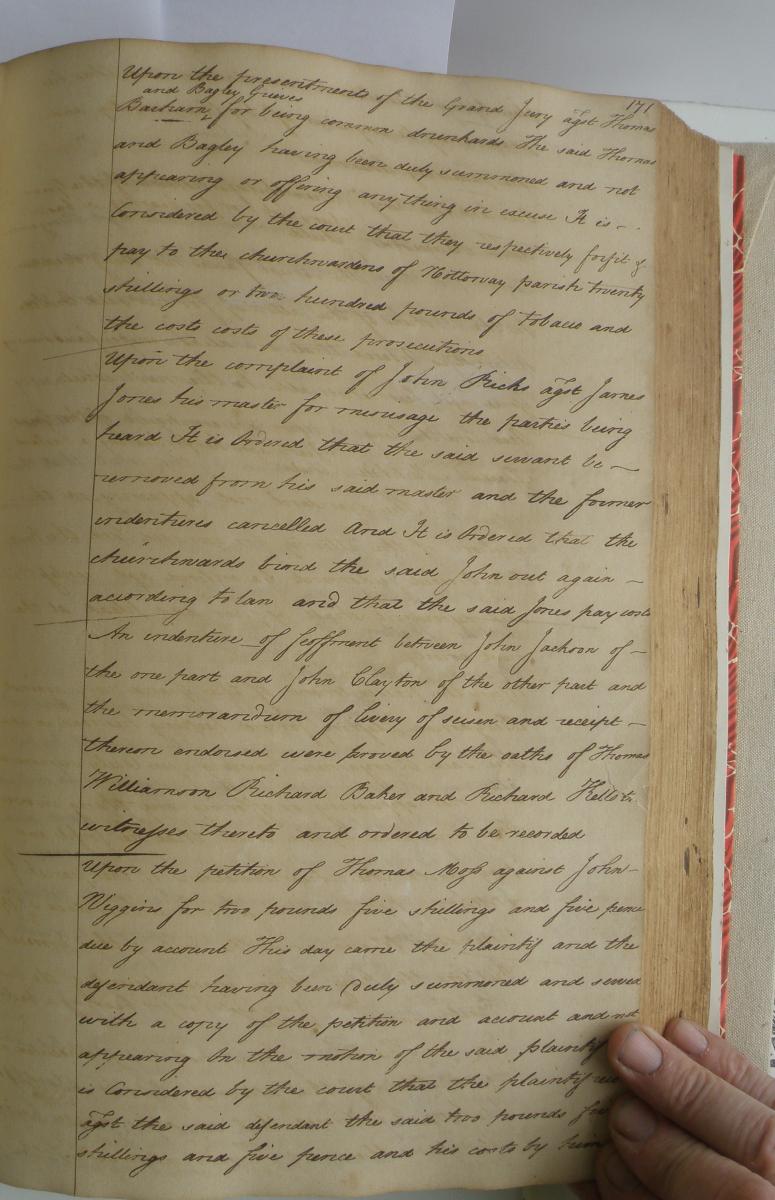 171
Upon the presentments of the Grand Jury agst Thomas
and Bagley Grieves
Barham, for being common drunkards The said Thomas
and Bagley having been duly summoned and not
appearing or offering anything in excuse It is
Considered by the court that they respectively forfit &
pay to the churchwardens of Nottoway parish twenty
shillings or two hundred pounds of tobaco and
the costs costs of these prosecutions
Upon the complaint of John Ricks agst James
Jones his master for misusage the parties being
heard It is Ordered that the said servant be
removed from his said master and the former
indentures cancelled And It is Ordered that the
churchwards bind the said John out again
according to law and that the said Jones pay costs
An indenture of feoffment between John Jackson of
the one part and John Clayton of the other part and
the memorandum of livery of seisen and receipt
thereon endorsed were proved by the oaths of Thomas
Williamson Richard Baker and Richard
witnesses thereto and ordered to be recorded
Upon the petition of Thomas Moss against John
Wiggins for two pounds five shillings and five pence
due by account This day came the plaintif and the
defendant having been duly summoned and served
with a copy of the petition and account and not
appearing On the motion of the said plaintif
is Considered by the court that the plaintif
agst the said defendant the said two pounds
shillings and five pence and his costs by